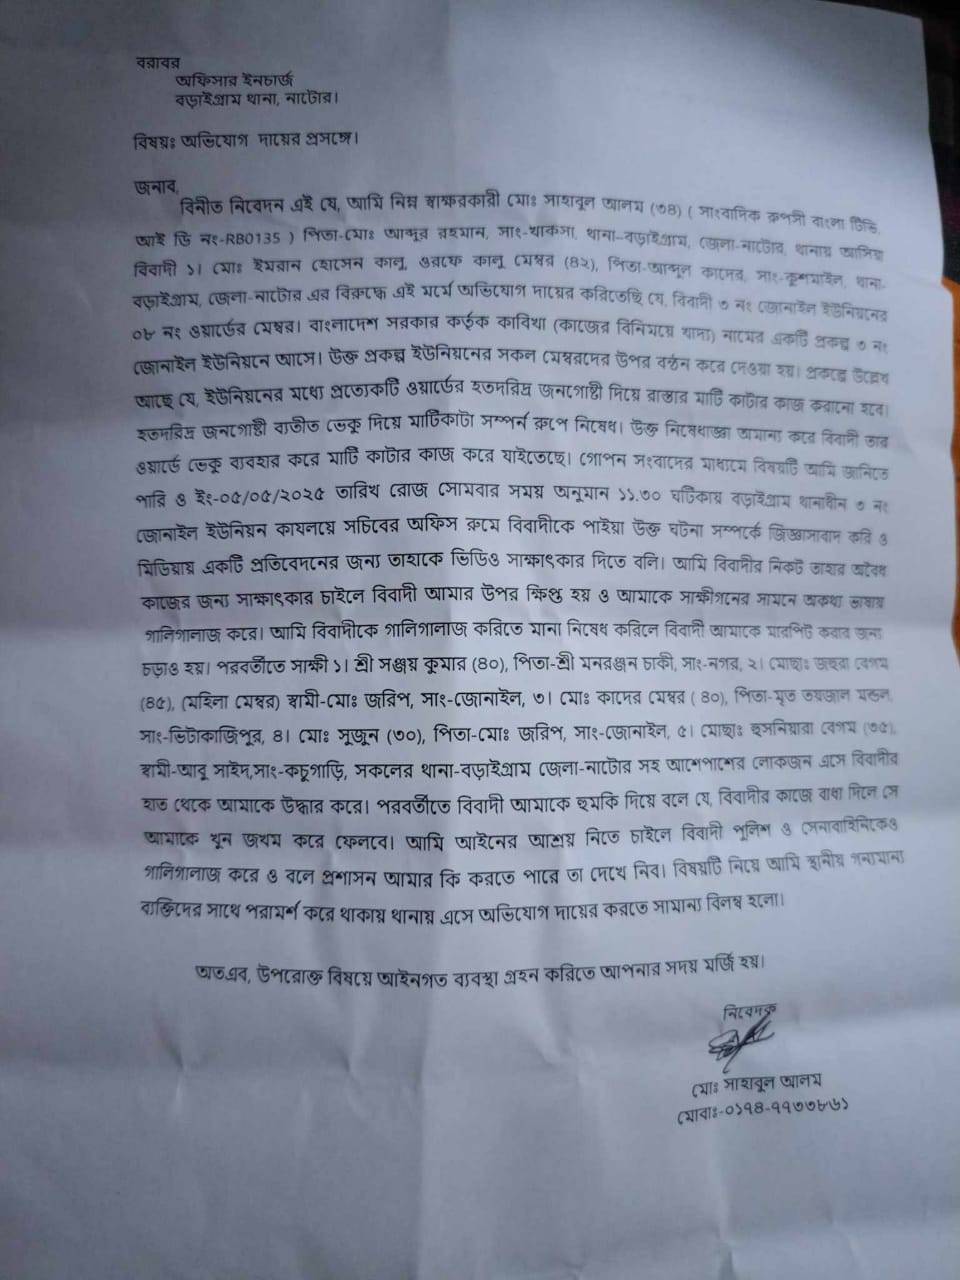 বরাবর
অফিসার ইনচার্জ
বড়াইগ্রাম থানা, নাটোর।
বিষয়ঃ অভিযোগ দায়ের প্রসঙ্গে।
জনাব,
বিনীত নিবেদন এই যে, আমি নিম্ন স্বাক্ষরকারী মোঃ সাহাবুল আলম (৩৪) ( সাংবাদিক রুপসী বাংলা টিভি,
আই ডি নং-RB0135 ) পিতা-মোঃ আব্দুর রহমান, সাং-খাকসা, থানা-বড়াইগ্রাম, জেলা-নাটোর, থানায় আসিয়া
বিবাদী ১। মোঃ ইমরান হোসেন কালু, ওরফে কালু মেম্বর (৪২), পিতা-আব্দুল কাদের, সাং-কুশমাইল, থানা-
বড়াইগ্রাম, জেলা-নাটোর এর বিরুদ্ধে এই মর্মে অভিযোগ দায়ের করিতেছি যে, বিবাদী ৩ নং জোনাইল ইউনিয়নের
০৮ নং ওয়ার্ডের মেম্বর। বাংলাদেশ সরকার কর্তৃক কাবিখা (কাজের বিনিময়ে খাদ্য) নামের একটি প্রকল্প ৩ নং
জোনাইল ইউনিয়নে আসে। উক্ত প্রকল্প ইউনিয়নের সকল মেম্বরদের উপর বন্ঠন করে দেওয়া হয়। প্রকল্পে উল্লেখ
আছে যে, ইউনিয়নের মধ্যে প্রত্যেকটি ওয়ার্ডের হতদরিদ্র জনগোষ্ঠী দিয়ে রাস্তার মাটি কাটার কাজ করানো হবে।
হতদরিদ্র জনগোষ্ঠী ব্যতীত ভেকু দিয়ে মাটিকাটা সম্পর্ন রুপে নিষেধ। উক্ত নিষেধাজ্ঞা অমান্য করে বিবাদী তার
ওয়ার্ডে ভেকু ব্যবহার করে মাটি কাটার কাজ করে যাইতেছে। গোপন সংবাদের মাধ্যমে বিষয়টি আমি জানিতে
পারি ও ইং-০৫/০৫/২০২৫ তারিখ রোজ সোমবার সময় অনুমান ১১.৩০ ঘটিকায় বড়াইগ্রাম থানাধীন ৩ নং
জোনাইল ইউনিয়ন কাযলয়ে সচিবের অফিস রুমে বিবাদীকে পাইয়া উক্ত ঘটনা সম্পর্কে জিজ্ঞাসাবাদ করি ও
মিডিয়ায় একটি প্রতিবেদনের জন্য তাহাকে ভিডিও সাক্ষাৎকার দিতে বলি। আমি বিবাদীর নিকট তাহার অবৈধ
কাজের জন্য সাক্ষাৎকার চাইলে বিবাদী আমার উপর ক্ষিপ্ত হয় ও আমাকে সাক্ষীগনের সামনে অকথ্য ভাষায়
গালিগালাজ করে। আমি বিবাদীকে গালিগালাজ করিতে মানা নিষেধ করিলে বিবাদী আমাকে মারপিট করার জন্য
চড়াও হয়। পরবর্তীতে সাক্ষী ১। শ্রী সঞ্জয় কুমার (৪০), পিতা-শ্রী মনরঞ্জন চাকী, সাং-নগর, ২। মোছাঃ জহুরা বেগম
(৪৫), (মহিলা মেম্বর) স্বামী-মোঃ জরিপ, সাং-জোনাইল, ৩। মোঃ কাদের মেম্বর ( ৪০), পিতা-মৃত তয়জাল মন্ডল,
সাং-ভিটাকাজিপুর, ৪। মোঃ সুজুন (৩০), পিতা-মোঃ জরিপ, সাং-জোনাইল, ৫। মোছাঃ হুসনিয়ারা বেগম (৩৫),
স্বামী-আবু সাইদ,সাং-কচুগাড়ি, সকলের থানা-বড়াইগ্রাম জেলা-নাটোর সহ আশেপাশের লোকজন এসে বিবাদীর
হাত থেকে আমাকে উদ্ধার করে। পরবর্তীতে বিবাদী আমাকে হুমকি দিয়ে বলে যে, বিবাদীর কাজে বাধা দিলে সে
আমাকে খুন জখম করে ফেলবে। আমি আইনের আশ্রয় নিতে চাইলে বিবাদী পুলিশ ও সেনাবাহিনিকেও
গালিগালাজ করে ও বলে প্রশাসন আমার কি করতে পারে তা দেখে নিব। বিষয়টি নিয়ে আমি স্থানীয় গন্যমান্য
ব্যক্তিদের সাথে পরামর্শ করে থাকায় থানায় এসে অভিযোগ দায়ের করতে সামান্য বিলম্ব হলো।
অতএব, উপরোক্ত বিষয়ে আইনগত ব্যবস্থা গ্রহন করিতে আপনার সদয় মর্জি হয়।
নিবেদক
মোঃ সাহাবুল আলম
মোবাঃ-০১৭৪-৭৭৩৩৮৬১